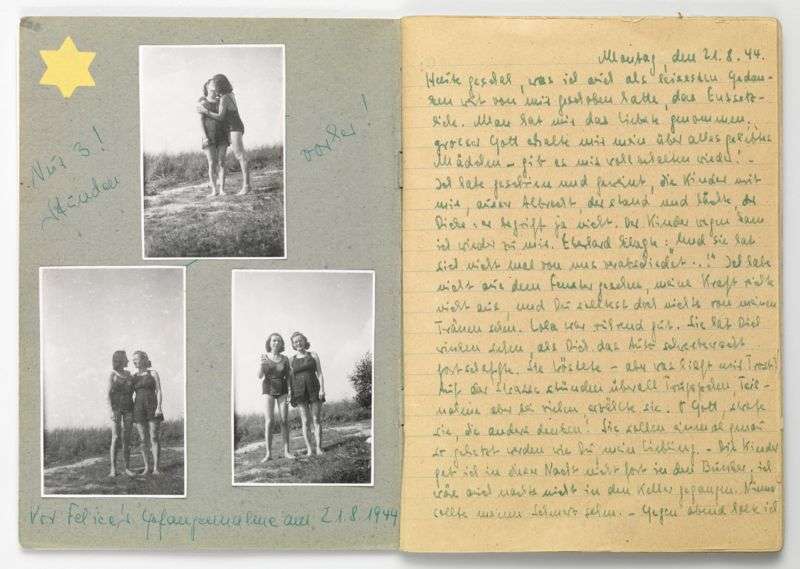 Nur 3!
Stunden
vorher!
Vor Felice's Gefangennahme am 21.8.1944
Montag, den 21.8.44.
Heute geschah, was ich auch als leisesten Gedan-
ken weit von mir geschoben hatte, das Entsetz-
liche. Man hat mir das Liebste genommen,
grosser Gott erhalte mir mein über alles geliebtes
Mädchen – gib es mir wieder! –
Ich habe geschrien und geweint, die Kinder mit
mir, ausser Albrecht, der stand und lachte, der
Dicke: er begriff ja nicht. Der Kinder wegen kam
ich wieder zu mir. Eberhard klagte: "Und sie hat
sich nicht mal von uns verabschiedet..!" Ich habe
nicht aus dem Fenster gesehen, meine Kraft reichte
nicht aus, und Du solltest doch nichts von meinen
Tränen sehn. Lola war rührend gut. Sie hat Dich
winken sehen, als Dich das Auto
fortschleppte. Sie tröstete – aber was hilft mir Trost!
Auf der Strasse stunden überall Trüppchen, Teil-
nahme aber bei vielen, erzählte sie. O Gott, strafe
sie, die anders denken! Sie sollen einmal genau
so gehetzt werden wie Du mein Liebling. – Die Kinder
geb ich in dieser Nacht nicht fort in den Bunker, ich
wäre auch nachts nicht in den Keller gegangen. Niemand
sollte meinen Schmerz sehn. – Gegen abend holte ich